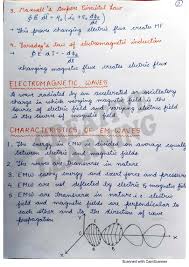 3. Maxwell's Ampere Circuital law
∮ B dl = μ₀ (ic + ε₀ dφE/dt)
→ this proves changing electric flux create MF
4. Faraday's law of electromagnetic induction
∮ E dl = - dφB/dt
changing magnetic flux creates electric flux
ELECTROMAGNETIC WAVES
A wave radiated by an accelerated or oscillatory
charge in which varying magnetic field is the
source of electric field and varying electric field is the
source of magnetic field
CHARACTERISTICS OF EM WAVES
1. The energy in EMW is divided on average equally
between electric field & magnetic field
2. The waves are transverse in nature
3. EMW carry energy and exert force and pressure
4. EMW are not deflected by electric & magnetic field
5. EMW are transverse in nature i.e. electric
field and magnetic fields are perpendicular to
each other and to the direction of wave
propagation
X
Scanned with CamScanner